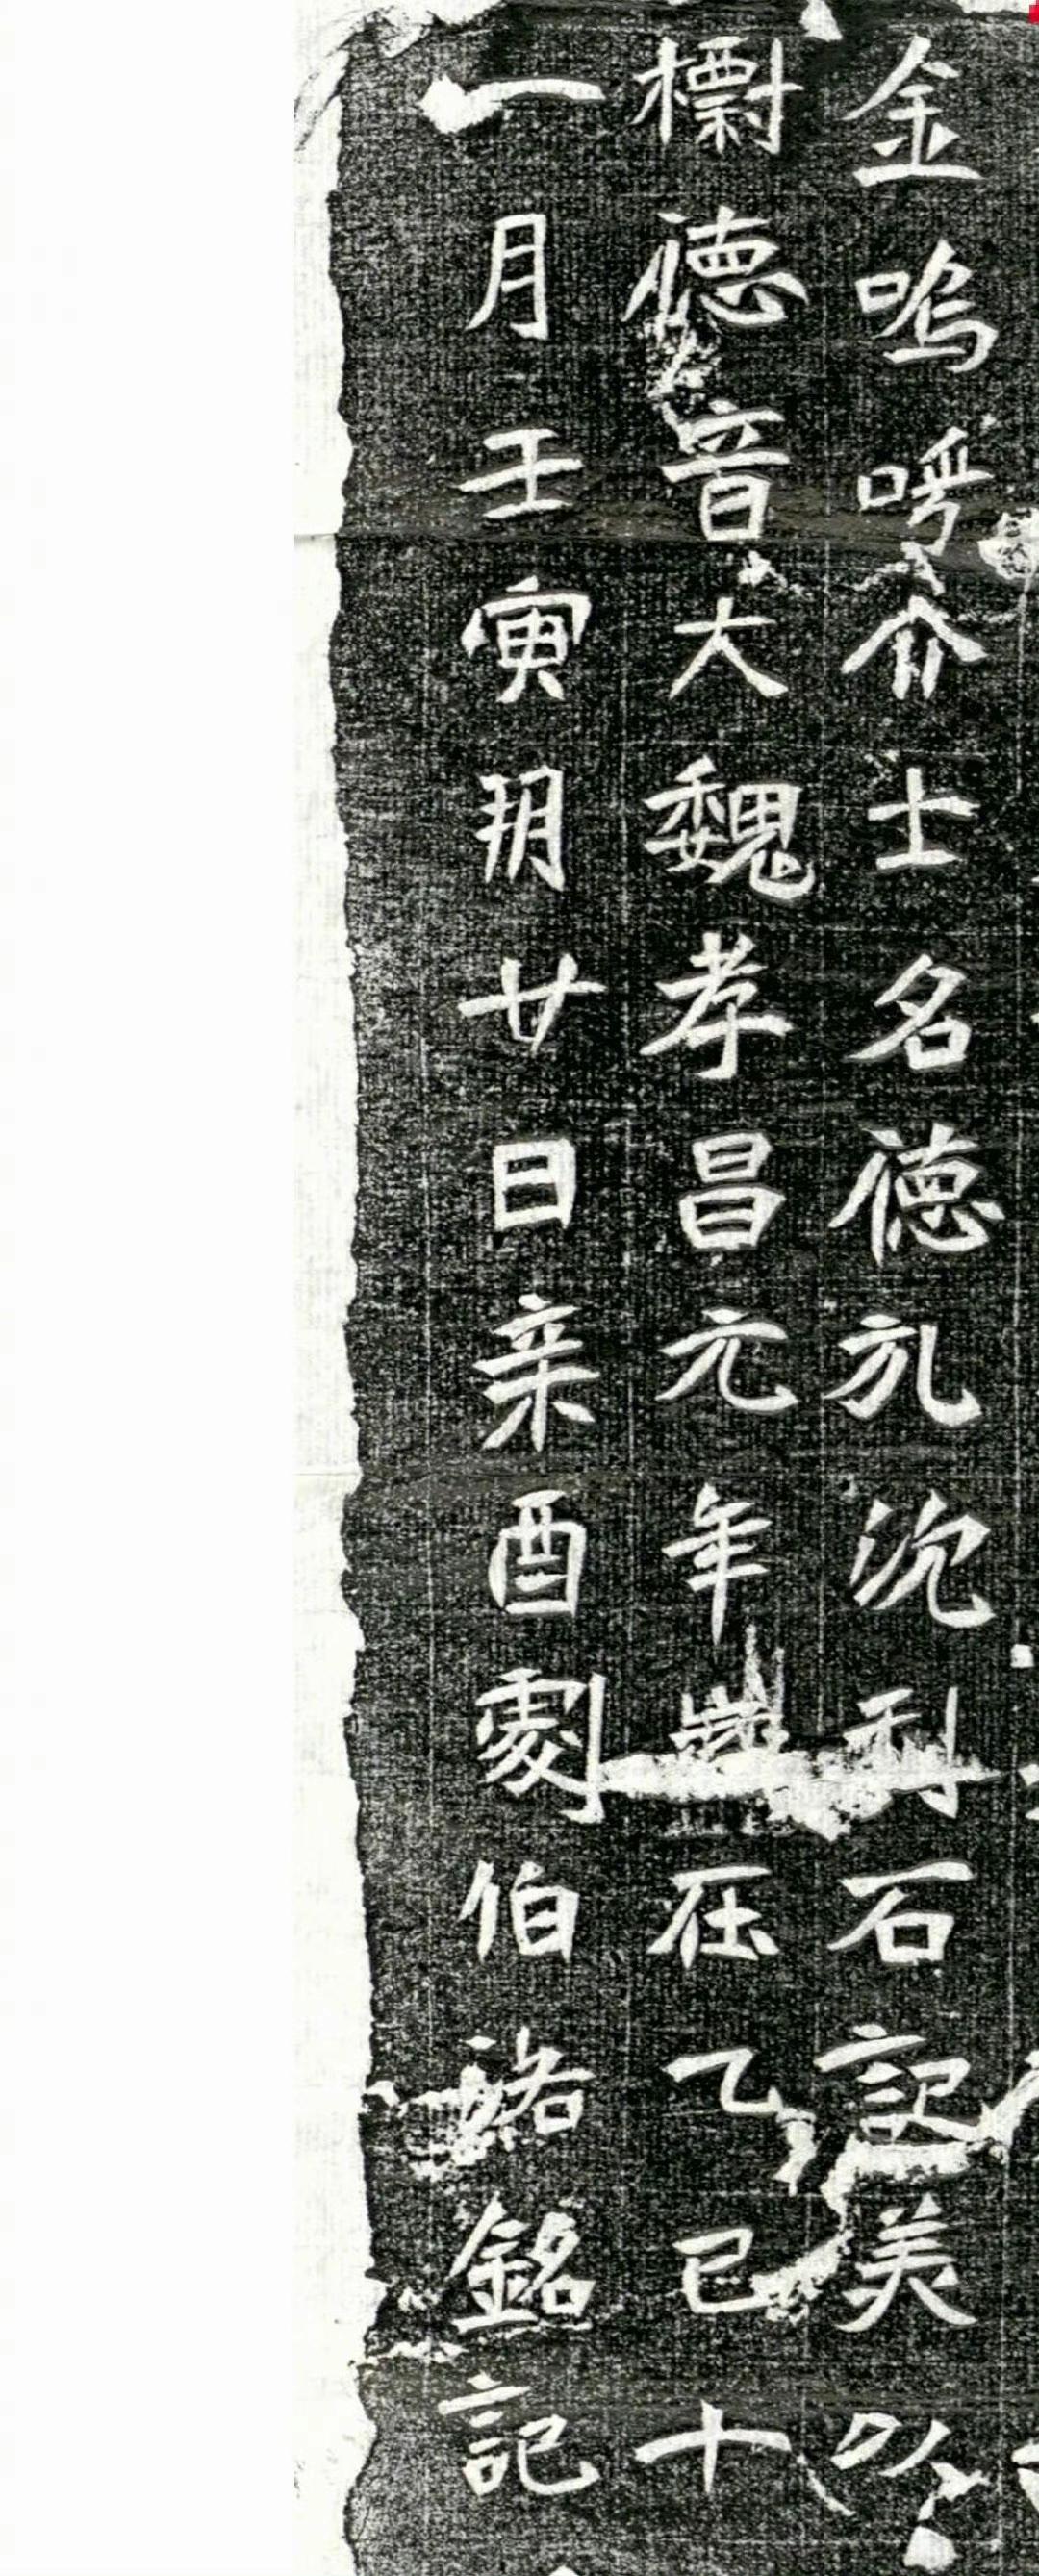 金嗚呼介士名德沉石記美以
標德音大魏孝昌元年歲在乙巳十
一月壬寅朔廿日辛酉劇伯銘記